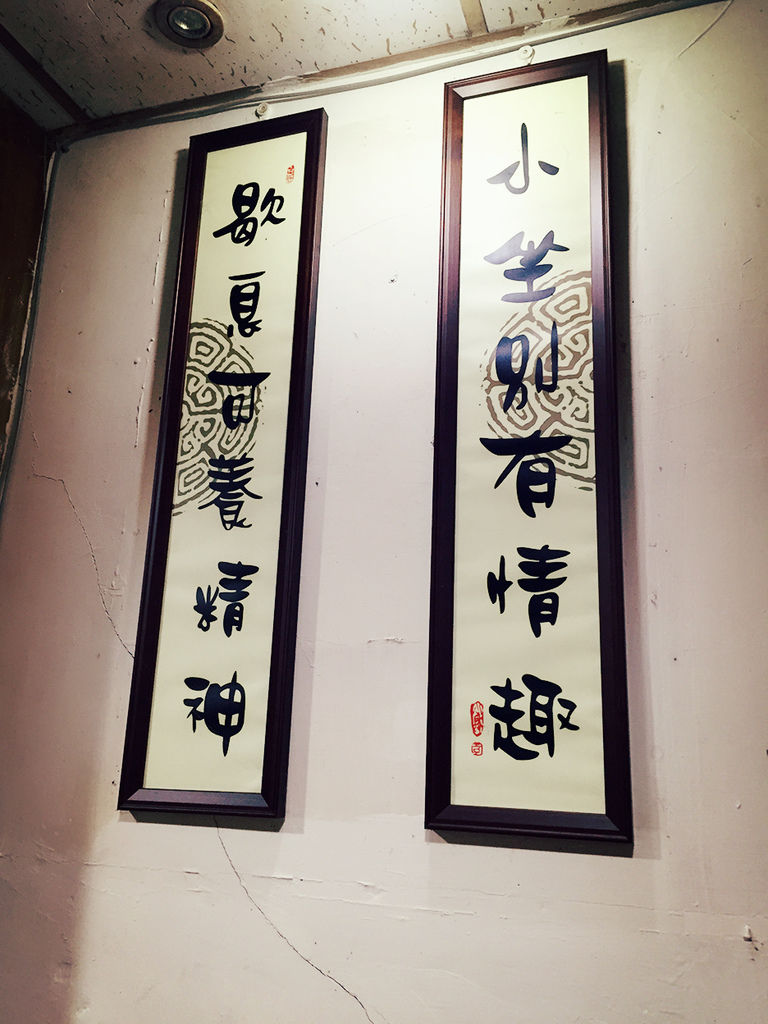 小坐別有情趣
歇息可養精神